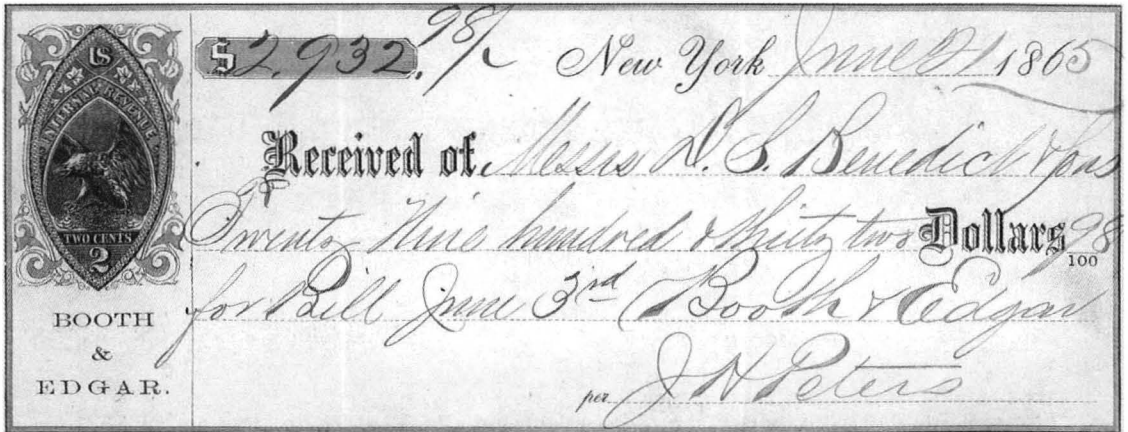 US
INTERNAL REVENUE
TWO CENTS
2
BOOTH
&
EDGAR.
$2,932.98/ New York June 21 1865
Received of Messrs D. S. Benedict & Sons
Twenty Nine hundred & thirty two Dollars 98/100
for Bill June 3rd Booth & Edgar
per J H Peters